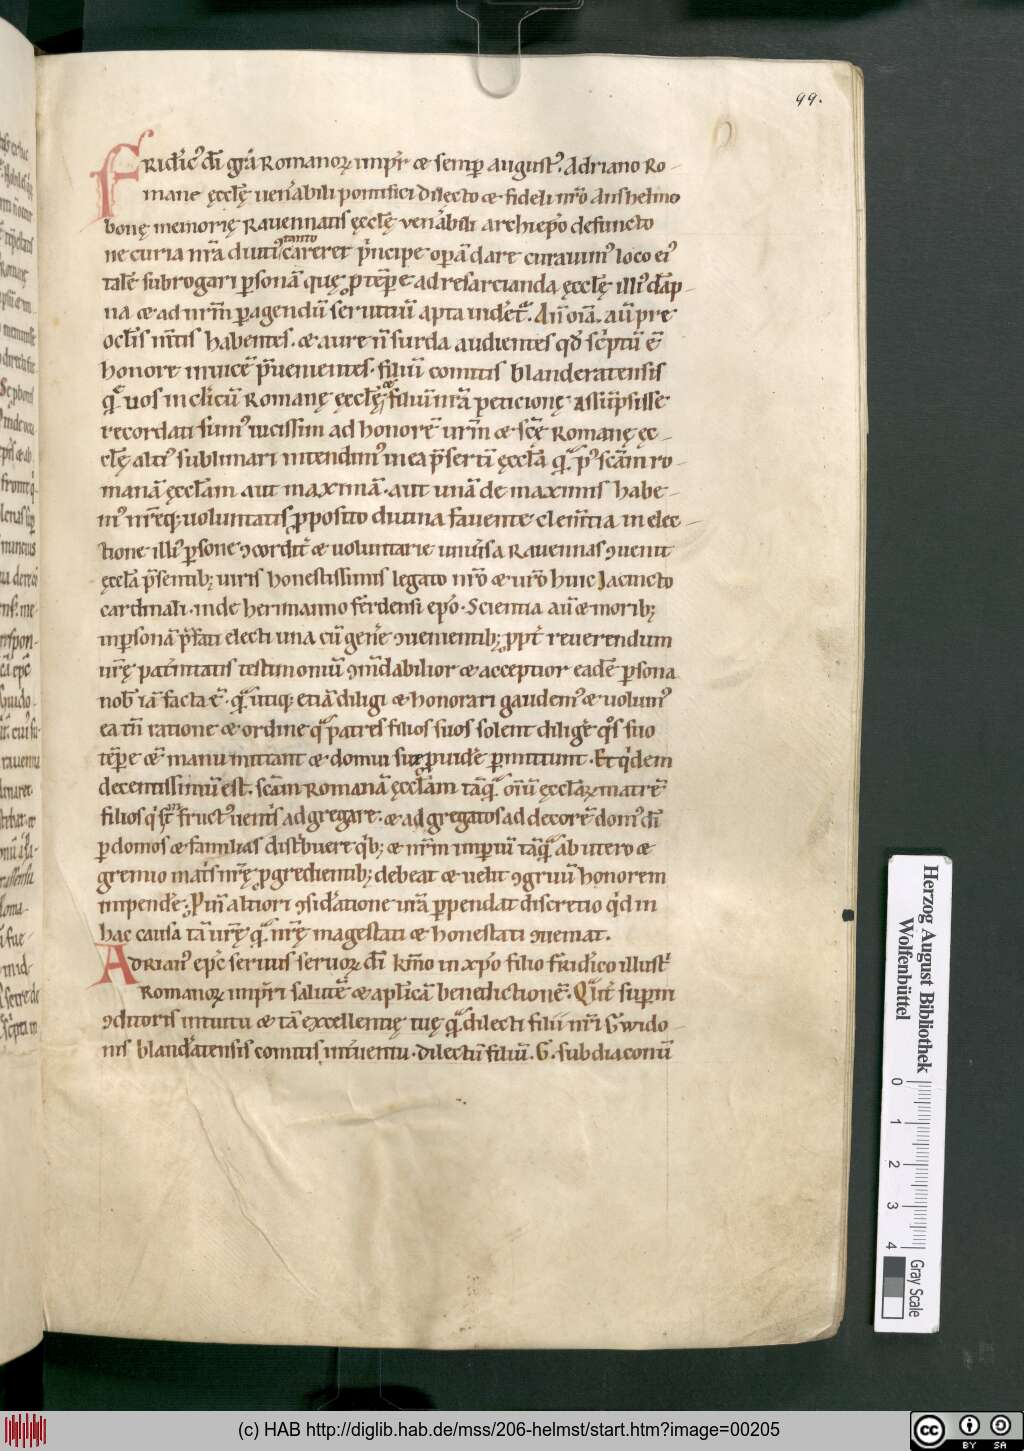 99.
Fridic᷒ dī grā Romanoꝝ imp̄r & semp̄ august᷒. Adriano Ro-
mane ęcclę̄ uen̄abili pontifici dilecto & fideli nr̄o Anshelmo
bonę memorię Rauennatis ęcclę̄ ven̄abili archiep̄o defuncto
ne curia nr̄a diuti᷒ tanto careret p̄ncipe op̄ā dare curauim᷒ loco ei᷒
talē subrogari ꝑsonā quę ꝓ tēp̄e & ad resarcienda ęcclę̄ illi᷒ dāp-
na & ad nr̄m ꝑagendū seruitiū apta uidēt᷒. An̄ oīa. aū pre
oclīs mn̄tis habentes. & aure n̄ surda audientes qd̄ sc̄ptū ē
honore inuicē p̄uenientes. filiū comitis blanderatensis
q̄ uos in cl̄icū Romanę ęcclę̄ & filiū nr̄ā peticionę assūpsisse
recordati sum᷒ uicissim ad honorē ur̄m & sc̄ę Romanę ęc-
clę̄ alti᷒ sublimari intendim᷒ in ea p̄sertī ęccl̄a q̄ p᷒ sc̄am ro-
manā ęccl̄am aut maximā. aut unā de maximis habe-
m᷒ nr̄eq; uoluntatis ꝓposito diuina fauente clem̄tia in elec-
tione illi᷒ ꝑsone ꝯcordit̄ & uoluntarie uniūsa Rauennas ꝯuenit
ęccl̄a p̄sentib; uiris honestissimis legato nr̄o & ur̄o huic Jacincto
cardinali. inde hermanno ferdensi ep̄o. Scientia aū & morib;
in ꝑsonā p̄fati electi una cū gen̄e ꝯuenientib; ꝓpt̄ reuerendum
ur̄ę patn̄itatis testimoniū ꝯm̄dabilior & acceptior eadē ꝑsona
nob̄ iā facta ē. q̄ utiq; etiā diligi & honorari gaudem᷒ & uolum᷒
ea tn̄ ratione & ordine q̄ patres filios suos solent diligē q̄s suo
tēp̄e & manu mittant & domui suę ꝓuidē ꝑmittunt. Et q̄dem
decentissimū est. sc̄am Romanā ęccl̄am tāq̄ oīū ęccl̄aꝝ matrē
filios q̄ st̄ in fruct᷒ uent̄s ad gregare. & ad gregatos ad decorē dom᷒ dī
ꝑ domos & familias dist̄buere q̄b; & nr̄m imperiū tāq̄ ab utero &
gremio mat̄s nr̄ę ꝓgredientib; debeat & uelit ꝯgruū honorem
impendē. Pūī altiori ꝯsid̄atione ur̄a ꝑpendat discretio q̄d in
hac causa tā ur̄ę q̄ nr̄ę magestati & honestati ꝯueniat.
Adrian᷒ ep̄c seruus seruoꝝ dī kīmo in xp̄o filio fridico illust̄
Romanoꝝ imp̄ri salutē & aplicā benedictionē. Q̄uit̄ sup̄ni
ꝯditoris intuitu & tā excellentię tuę q̄ dilecti filii nr̄i Gwido-
nis blandat̄ensis comitis int̄uentu. dilectū filiū. G. subdiaconū
Herzog August Bibliothek
Wolfenbüttel
0 1 2 3 4
Gray Scale
(c) HAB http://diglib.hab.de/mss/206-helmst/start.htm?image=00205
cc BY SA